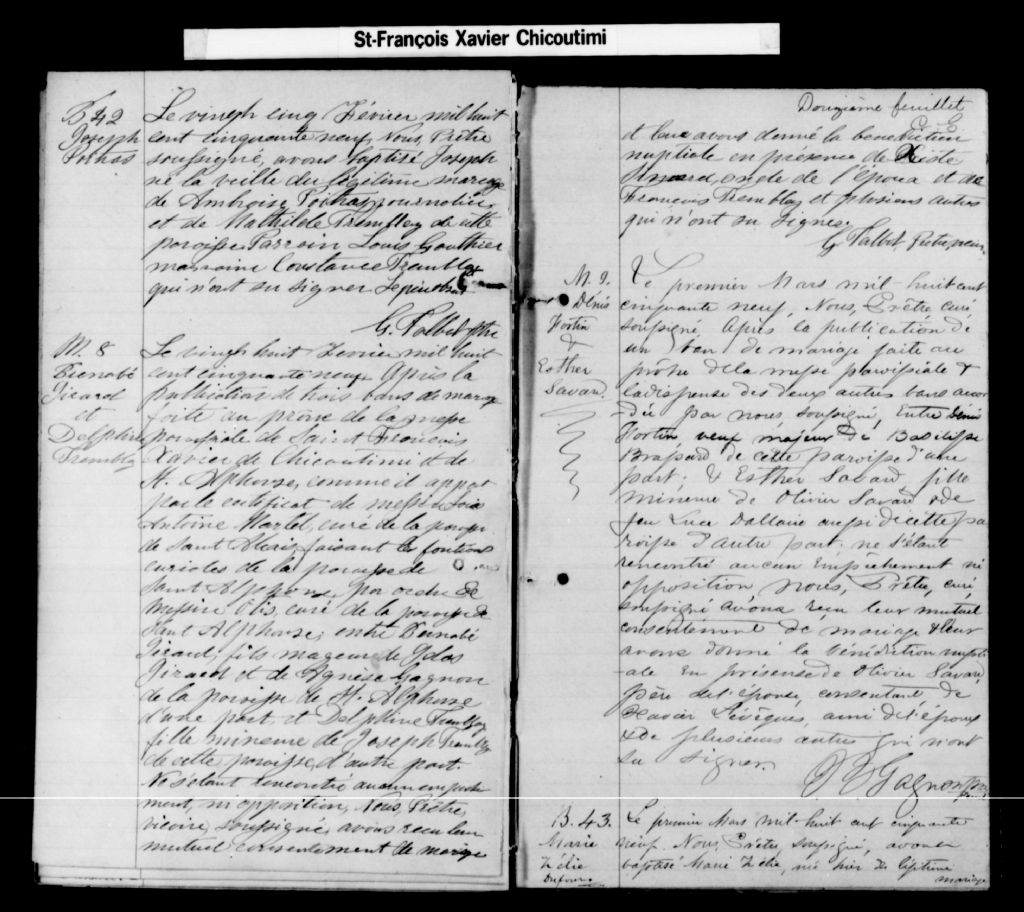 St-François Xavier Chicoutimi
B 42
Joseph
Le vingt cinq Février mil huit
cent cinquante neuf, Nous, Prêtre
soussigné, avons baptisé Joseph
né la veille du légitime mariage
de Ambroise journalier
et de Mathilde Tremblay de cette
paroisse. Parrain Louis Gauthier
marraine Constance Tremblay
qui n'ont su signer
G. Talbot Ptre
M. 8
Bernabé
Girard
et
Delphine
Tremblay
Le vingt huit Fevrier mil huit
cent cinquante neuf Après la
publication de trois bans de mariage
faite au prône de la messe
paroissiale de Saint François
Xavier de Chicoutimi et de
St. Alphonse, comme il appert
par le certificat de messire Louis
Antoine Martel, curé de la paroisse
de Saint Alexis, faisant les fonctions
curiales de la paroisse de
Saint Alphonse, par ordre de
messire Otis, curé de la paroisse de
Saint Alphonse; entre Bernabé
Girard, fils mageur de
Girard et de Agnèse Gagnon
de la paroisse de St. Alphonse
d'une part et Delphine Tremblay
fille mineure de Joseph Tremblay
de cette paroisse, d'autre part.
Ne s'étant rencontré aucun empeche
ment, ni opposition, Nous, Prêtre,
vicaire, soussigné, avons reçu leur
mutuel consentement de mariage
Douzième feuillet
et leur avons donné la bénédiction
nuptiale en présence de Xiste
Simard, oncle de l'époux et de
François Tremblay et plusieurs autres
qui n'ont su signer.
G. Talbot Prêtre
M. 9.
Dénis
Fortin
&
Esther
Savard.
Le premier Mars mil-huit cent
cinquante neuf, Nous, Prêtre curé,
soussigné Après la publication de
un ban de mariage faite au
prône de la messe paroissiale &
la dispense des deux autres bans accor
-dée par nous, soussigné, Entre Denis
Fortin, veuf majeur de Basilisse
Brassard de cette paroisse d'une
part; & Esther Savard fille
mineure de Olivier Savard & de
feu Luce Dallaire aussi de cette pa
roisse d'autre part; ne s'étant
rencontré aucun empêchement ni
opposition Nous, Prêtre, curé,
soussigné avons reçu leur mutuel
consentement de mariage & leur
avons donné la bénédiction nupti
-ale en présense de Olivier Savard,
père de l'épouse, consentant de
Xavier Lévêque, ami de l'époux
& de plusieurs autres qui n'ont
su signer.
Gagnon
B. 43.
Marie
Zélie
Dufour.
Le premier Mars mil-huit cent cinquante
neuf. Nous, Prêtre, soussigné, avons
baptisé Marie Zélie, née hier du légitime
mariage